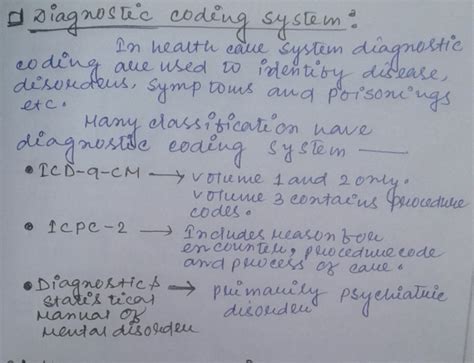 □ Diagnostic coding system:
In health care system diagnostic
coding are used to identify disease,
disorders, symptoms and poisonings
etc.
Many classification have
diagnostic coding system —
• ICD-9-CM → volume 1 and 2 only.
volume 3 contains procedure
codes.
• ICPC-2 → Includes reason for
encounter, procedure code
and process of care.
• Diagnostic & → primarily psychiatric
statistical disorder
manual of
mental disorder